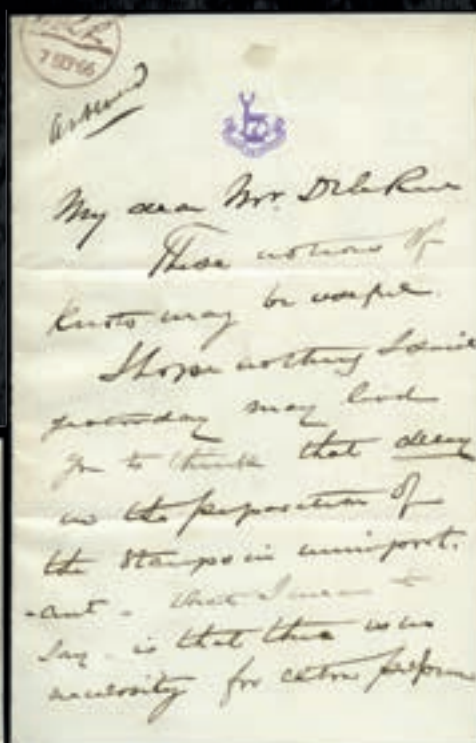 7 SEP 66
Answered
My dear Mr. De la Rue
These notions of
Knots may be useful.
I hope nothing I said
yesterday may lead
you to think that delay
in the preparation of
the Stamps is unimport-
-ant - what I mean to
say - is that there is no
necessity for extra